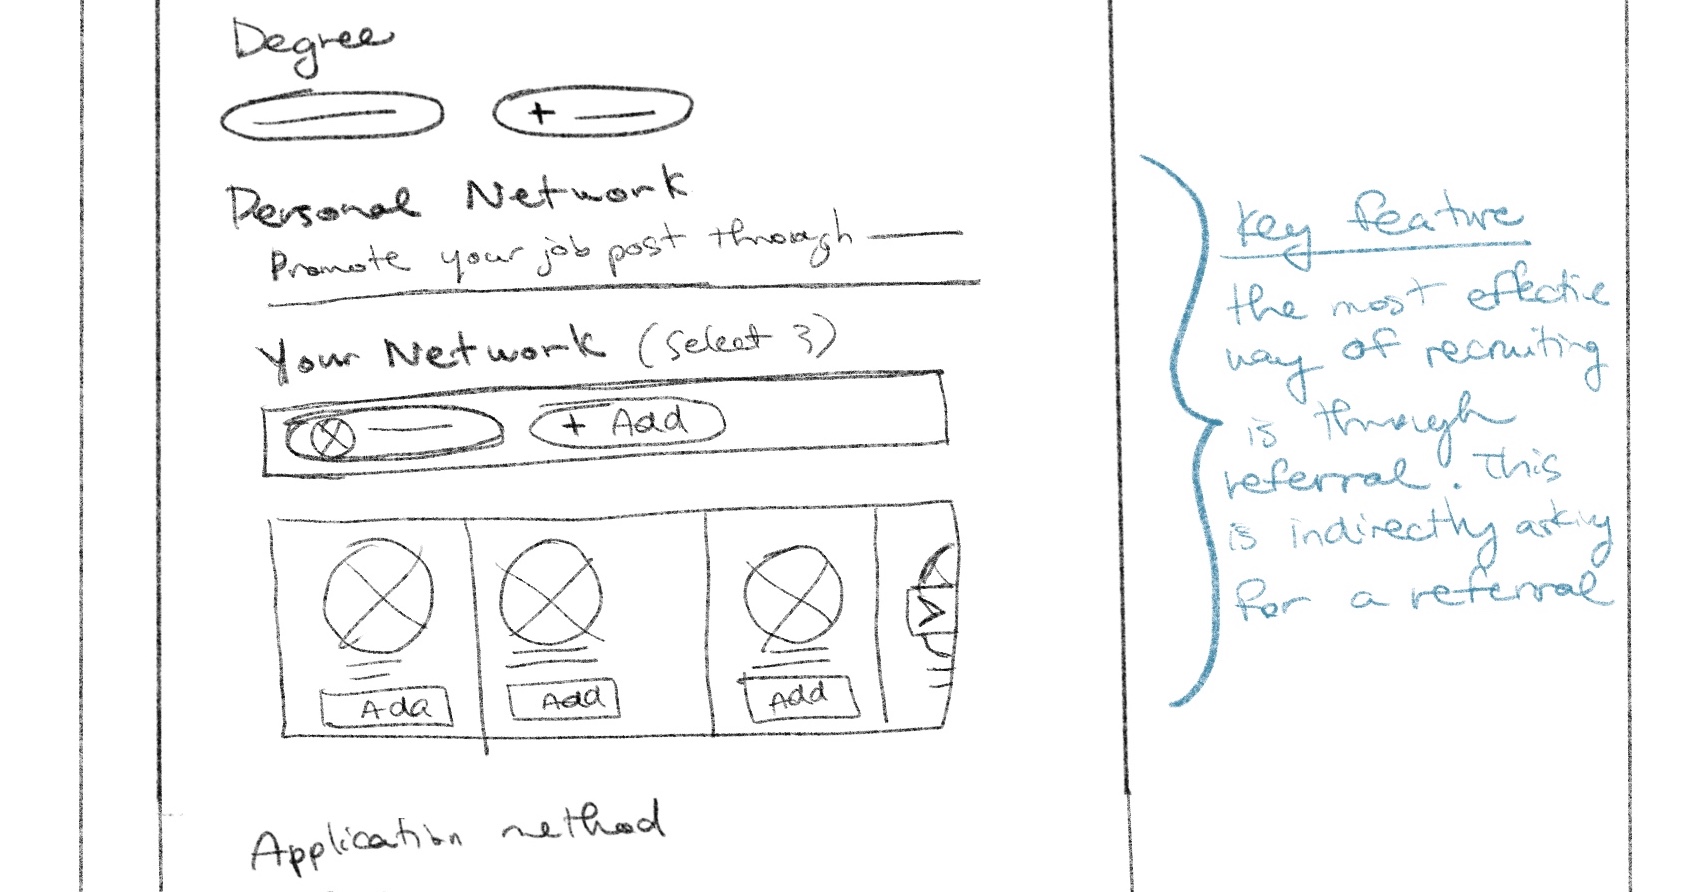 Degree
+
Personal Network
Promote your job post through
Your Network (select 3)
+ Add
Add
Add
Add
Application method
key feature
the most effective
way of recruiting
is through
referral. This
is indirectly asking
for a referral